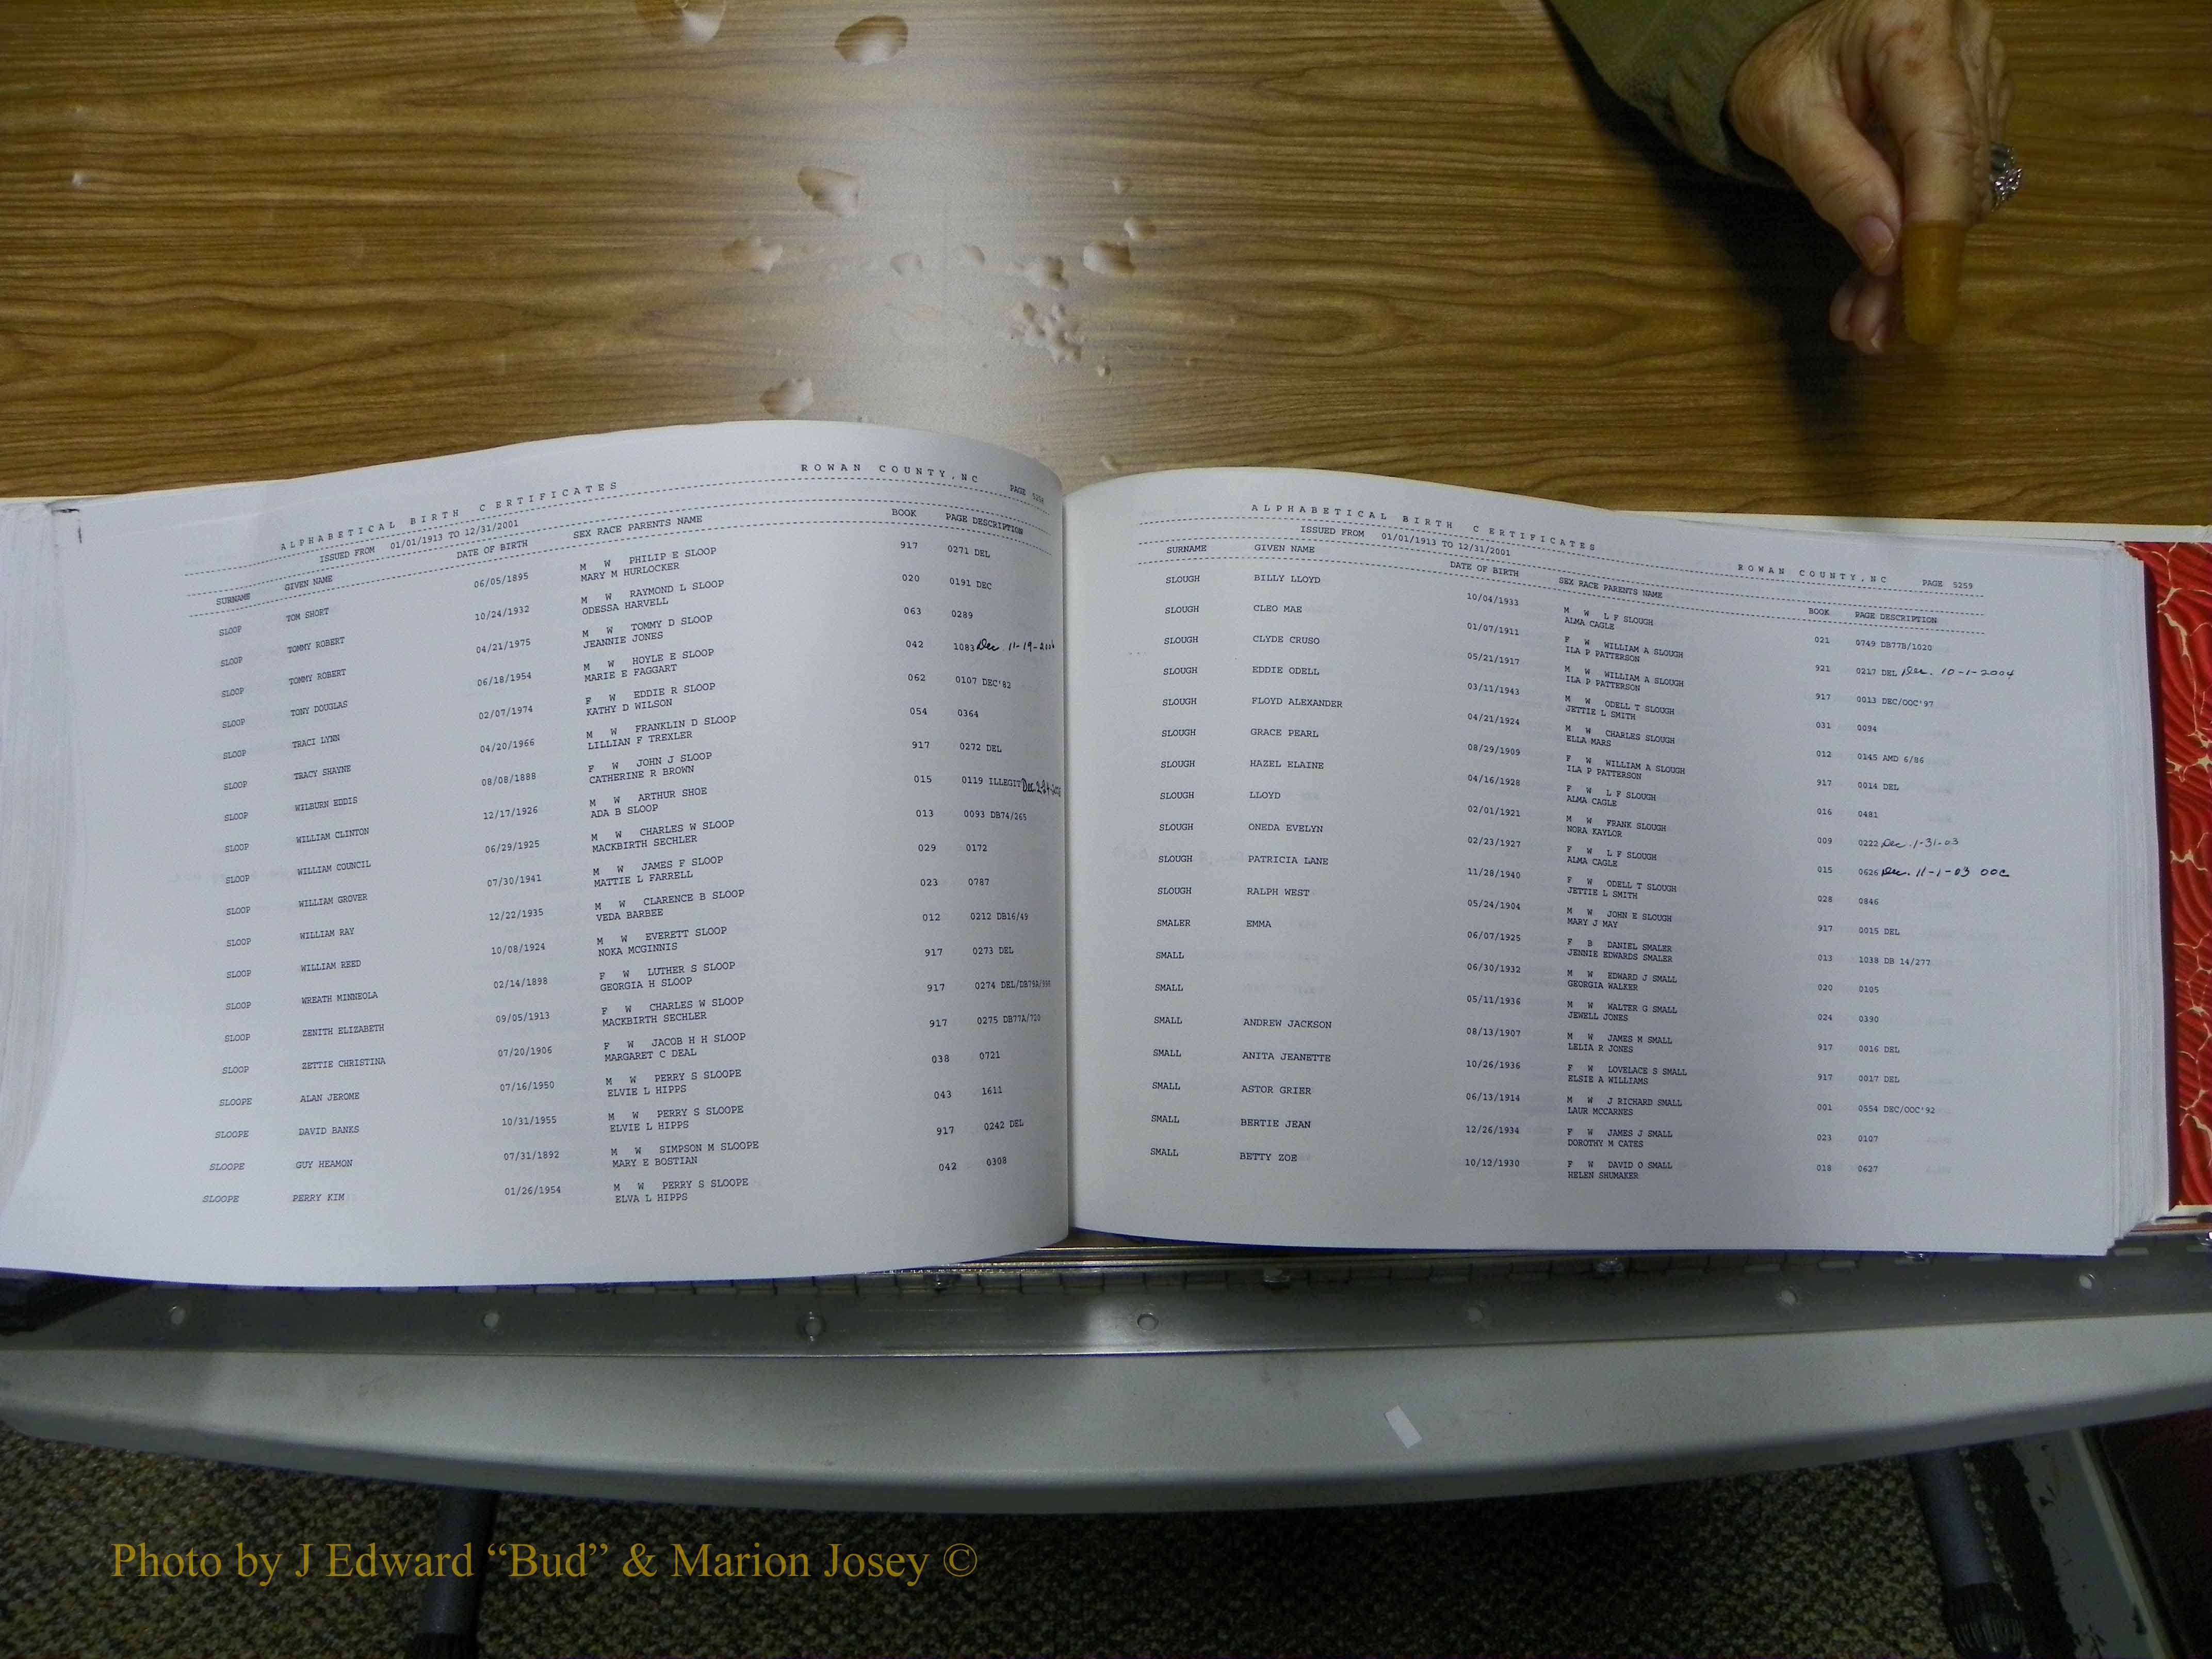 ALPHABETICAL BIRTH CERTIFICATES ROWAN COUNTY,NC PAGE 5258
ISSUED FROM 01/01/1913 TO 12/31/2001
SURNAME GIVEN NAME DATE OF BIRTH SEX RACE PARENTS NAME BOOK PAGE DESCRIPTION
SLOOP TOM SHORT 06/05/1895 M W PHILIP E SLOOP 917 0271 DEL
MARY M HURLOCKER
SLOOP TOMMY ROBERT 10/24/1932 M W RAYMOND L SLOOP 020 0191 DEC
ODESSA HARVELL
SLOOP TOMMY ROBERT 04/21/1975 M W TOMMY D SLOOP 063 0289
JEANNIE JONES
SLOOP TONY DOUGLAS 06/18/1954 M W HOYLE E SLOOP 042 1083 Dec. 11-19-2006
MARIE E FAGGART
SLOOP TRACI LYNN 02/07/1974 F W EDDIE R SLOOP 062 0107 DEC'82
KATHY D WILSON
SLOOP TRACY SHAYNE 04/20/1966 M W FRANKLIN D SLOOP 054 0364
LILLIAN F TREXLER
SLOOP WILBURN EDDIS 08/08/1888 F W JOHN J SLOOP 917 0272 DEL
CATHERINE R BROWN
SLOOP WILLIAM CLINTON 12/17/1926 M W ARTHUR SHOE 015 0119 ILLEGIT Dec.
ADA B SLOOP
SLOOP WILLIAM COUNCIL 06/29/1925 M W CHARLES W SLOOP 013 0093 DB74/265
MACKBIRTH SECHLER
SLOOP WILLIAM GROVER 07/30/1941 M W JAMES F SLOOP 029 0172
MATTIE L FARRELL
SLOOP WILLIAM RAY 12/22/1935 M W CLARENCE B SLOOP 023 0787
VEDA BARBEE
SLOOP WILLIAM REED 10/08/1924 M W EVERETT SLOOP 012 0212 DB16/49
NOKA MCGINNIS
SLOOP WREATH MINNEOLA 02/14/1898 F W LUTHER S SLOOP 917 0273 DEL
GEORGIA H SLOOP
SLOOP ZENITH ELIZABETH 09/05/1913 F W CHARLES W SLOOP 917 0274
MACKBIRTH SECHLER
SLOOP ZETTIE CHRISTINA 07/20/1906 F W JACOB H H SLOOP 917 0275 DB77A/720
MARGARET C DEAL
SLOOPE ALAN JEROME 07/16/1950 M W PERRY S SLOOPE 038 0721
ELVIE L HIPPS
SLOOPE DAVID BANKS 10/31/1955 M W PERRY S SLOOPE 043 1611
ELVIE L HIPPS
SLOOPE GUY HEAMON 07/31/1892 M W SIMPSON M SLOOPE 917 0242 DEL
MARY E BOSTIAN
SLOOPE PERRY KIM 01/26/1954 M W PERRY S SLOOPE 042 0308
ELVA L HIPPS
ALPHABETICAL BIRTH CERTIFICATES ROWAN COUNTY,NC PAGE 5259
ISSUED FROM 01/01/1913 TO 12/31/2001
SURNAME GIVEN NAME DATE OF BIRTH SEX RACE PARENTS NAME BOOK PAGE DESCRIPTION
SLOUGH BILLY LLOYD 10/04/1933 M W L F SLOUGH 021 0749 DB77B/1020
ALMA CAGLE
SLOUGH CLEO MAE 01/07/1911 F W WILLIAM A SLOUGH 921 0217 DEL Dec. 10-1-2004
ILA P PATTERSON
SLOUGH CLYDE CRUSO 05/21/1917 M W WILLIAM A SLOUGH 917 0013 DEC/OOC'97
ILA P PATTERSON
SLOUGH EDDIE ODELL 03/11/1943 M W ODELL T SLOUGH 031 0094
JETTIE L SMITH
SLOUGH FLOYD ALEXANDER 04/21/1924 M W CHARLES SLOUGH 012 0145 AMD 6/86
ELLA MARS
SLOUGH GRACE PEARL 08/29/1909 F W WILLIAM A SLOUGH 917 0014 DEL
ILA P PATTERSON
SLOUGH HAZEL ELAINE 04/16/1928 F W L F SLOUGH 016 0481
ALMA CAGLE
SLOUGH LLOYD 02/01/1921 M W FRANK SLOUGH 009 0222 Dec. 1-31-03
NORA KAYLOR
SLOUGH ONEDA EVELYN 02/23/1927 F W L F SLOUGH 015 0626 Dec. 11-1-03 OOC
ALMA CAGLE
SLOUGH PATRICIA LANE 11/28/1940 F W ODELL T SLOUGH 028 0846
JETTIE L SMITH
SLOUGH RALPH WEST 05/24/1904 M W JOHN E SLOUGH 917 0015 DEL
MARY J MAY
SMALER EMMA 06/07/1925 F B DANIEL SMALER 013 1038 DB 14/277
JENNIE EDWARDS SMALER
SMALL 06/30/1932 M W EDWARD J SMALL 020 0105
GEORGIA WALKER
SMALL 05/11/1936 M W WALTER G SMALL 024 0390
JEWELL JONES
SMALL ANDREW JACKSON 08/13/1907 M W JAMES M SMALL 917 0016 DEL
LELIA R JONES
SMALL ANITA JEANETTE 10/26/1936 F W LOVELACE S SMALL 917 0017 DEL
ELSIE A WILLIAMS
SMALL ASTOR GRIER 06/13/1914 M W J RICHARD SMALL 001 0554 DEC/OOC'92
LAUR MCCARNES
SMALL BERTIE JEAN 12/26/1934 F W JAMES J SMALL 023 0107
DOROTHY M CATES
SMALL BETTY ZOE 10/12/1930 F W DAVID O SMALL 018 0627
HELEN SHUMAKER
Photo by J Edward “Bud” & Marion Josey ©